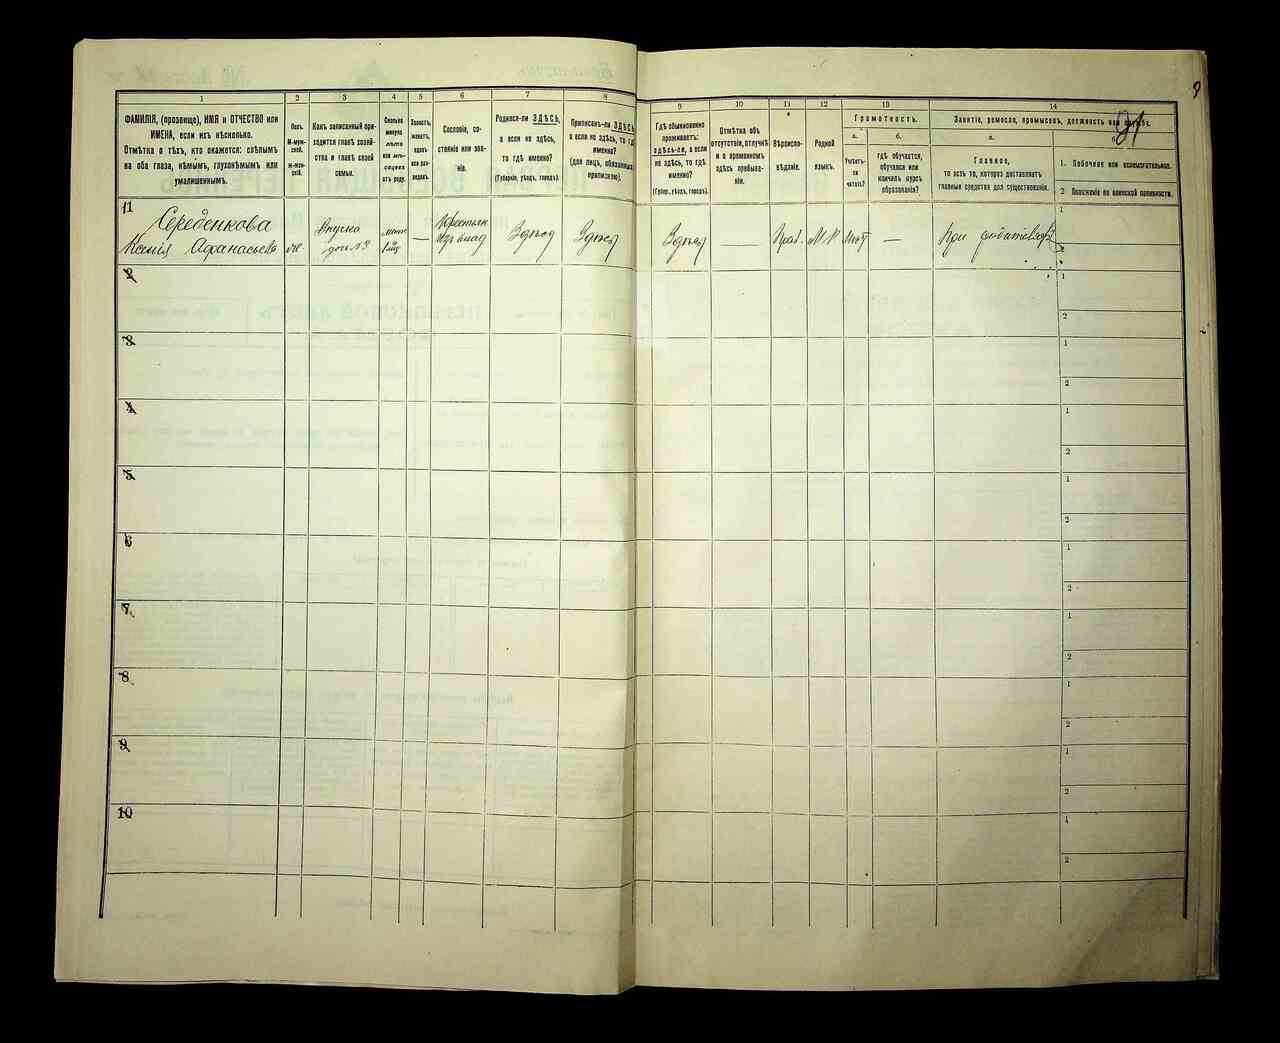 1
2
3
4
5
6
7
8
ФАМИЛІЯ, (прозвище), ИМЯ и ОТЧЕСТВО или
ИМЕНА, если ихъ нѣсколько.
Отмѣтка о тѣхъ, кто окажется: слѣпымъ
на оба глаза, нѣмымъ, глухонѣмымъ или
умалишеннымъ.
Полъ.
М-муж-
ской.
Ж-жен-
скій.
Какъ записанный при-
ходится главѣ хозяй-
ства и главѣ своей
семьи.
Сколько
минуло
лѣтъ
или мѣ-
сяцевъ
отъ роду.
Холостъ,
женатъ,
вдовъ
или раз-
веденъ.
Сословіе, со-
стояніе или зва-
ніе.
Родился-ли ЗДѢСЬ,
а если не здѣсь,
то гдѣ именно?
(Губернія, уѣздъ, городъ).
Приписанъ-ли ЗДѢСЬ,
а если не здѣсь, то гдѣ
именно?
(для лицъ, обязанныхъ
припискою).
9
10
11
12
13
14
Гдѣ обыкновенно
проживаетъ:
здѣсь-ли, а если
не здѣсь, то гдѣ
именно?
(Губер., уѣздъ, городъ).
Отмѣтка объ
отсутствіи, отлучкѣ
и о временномъ
здѣсь пребыва-
ніи.
Вѣроиспо-
вѣданіе.
Родной
языкъ.
Грамотность.
а.
б.
Умѣетъ-
ли
читать?
гдѣ обучается,
обучался или
кончилъ курсъ
образованія?
Занятіе, ремесло, промыселъ, должность или служба.
а.
Главное,
то есть то, которое доставляетъ
главныя средства для существованія.
1. Побочное или вспомогательное.
2 Положеніе по воинской повинности.
11
Середенкова
Ксенія Афанасьева
ж.
Внучка
дочь 9
—
Крестьян
изъ влад
Здѣсь
Здѣсь
Здѣсь
—
Прав.
М/Р
нѣт
—
При родителях
1
2
2
1
2
3
1
2
4
1
2
5
1
2
6
1
2
7
1
2
8
1
2
9
1
2
10
1
2